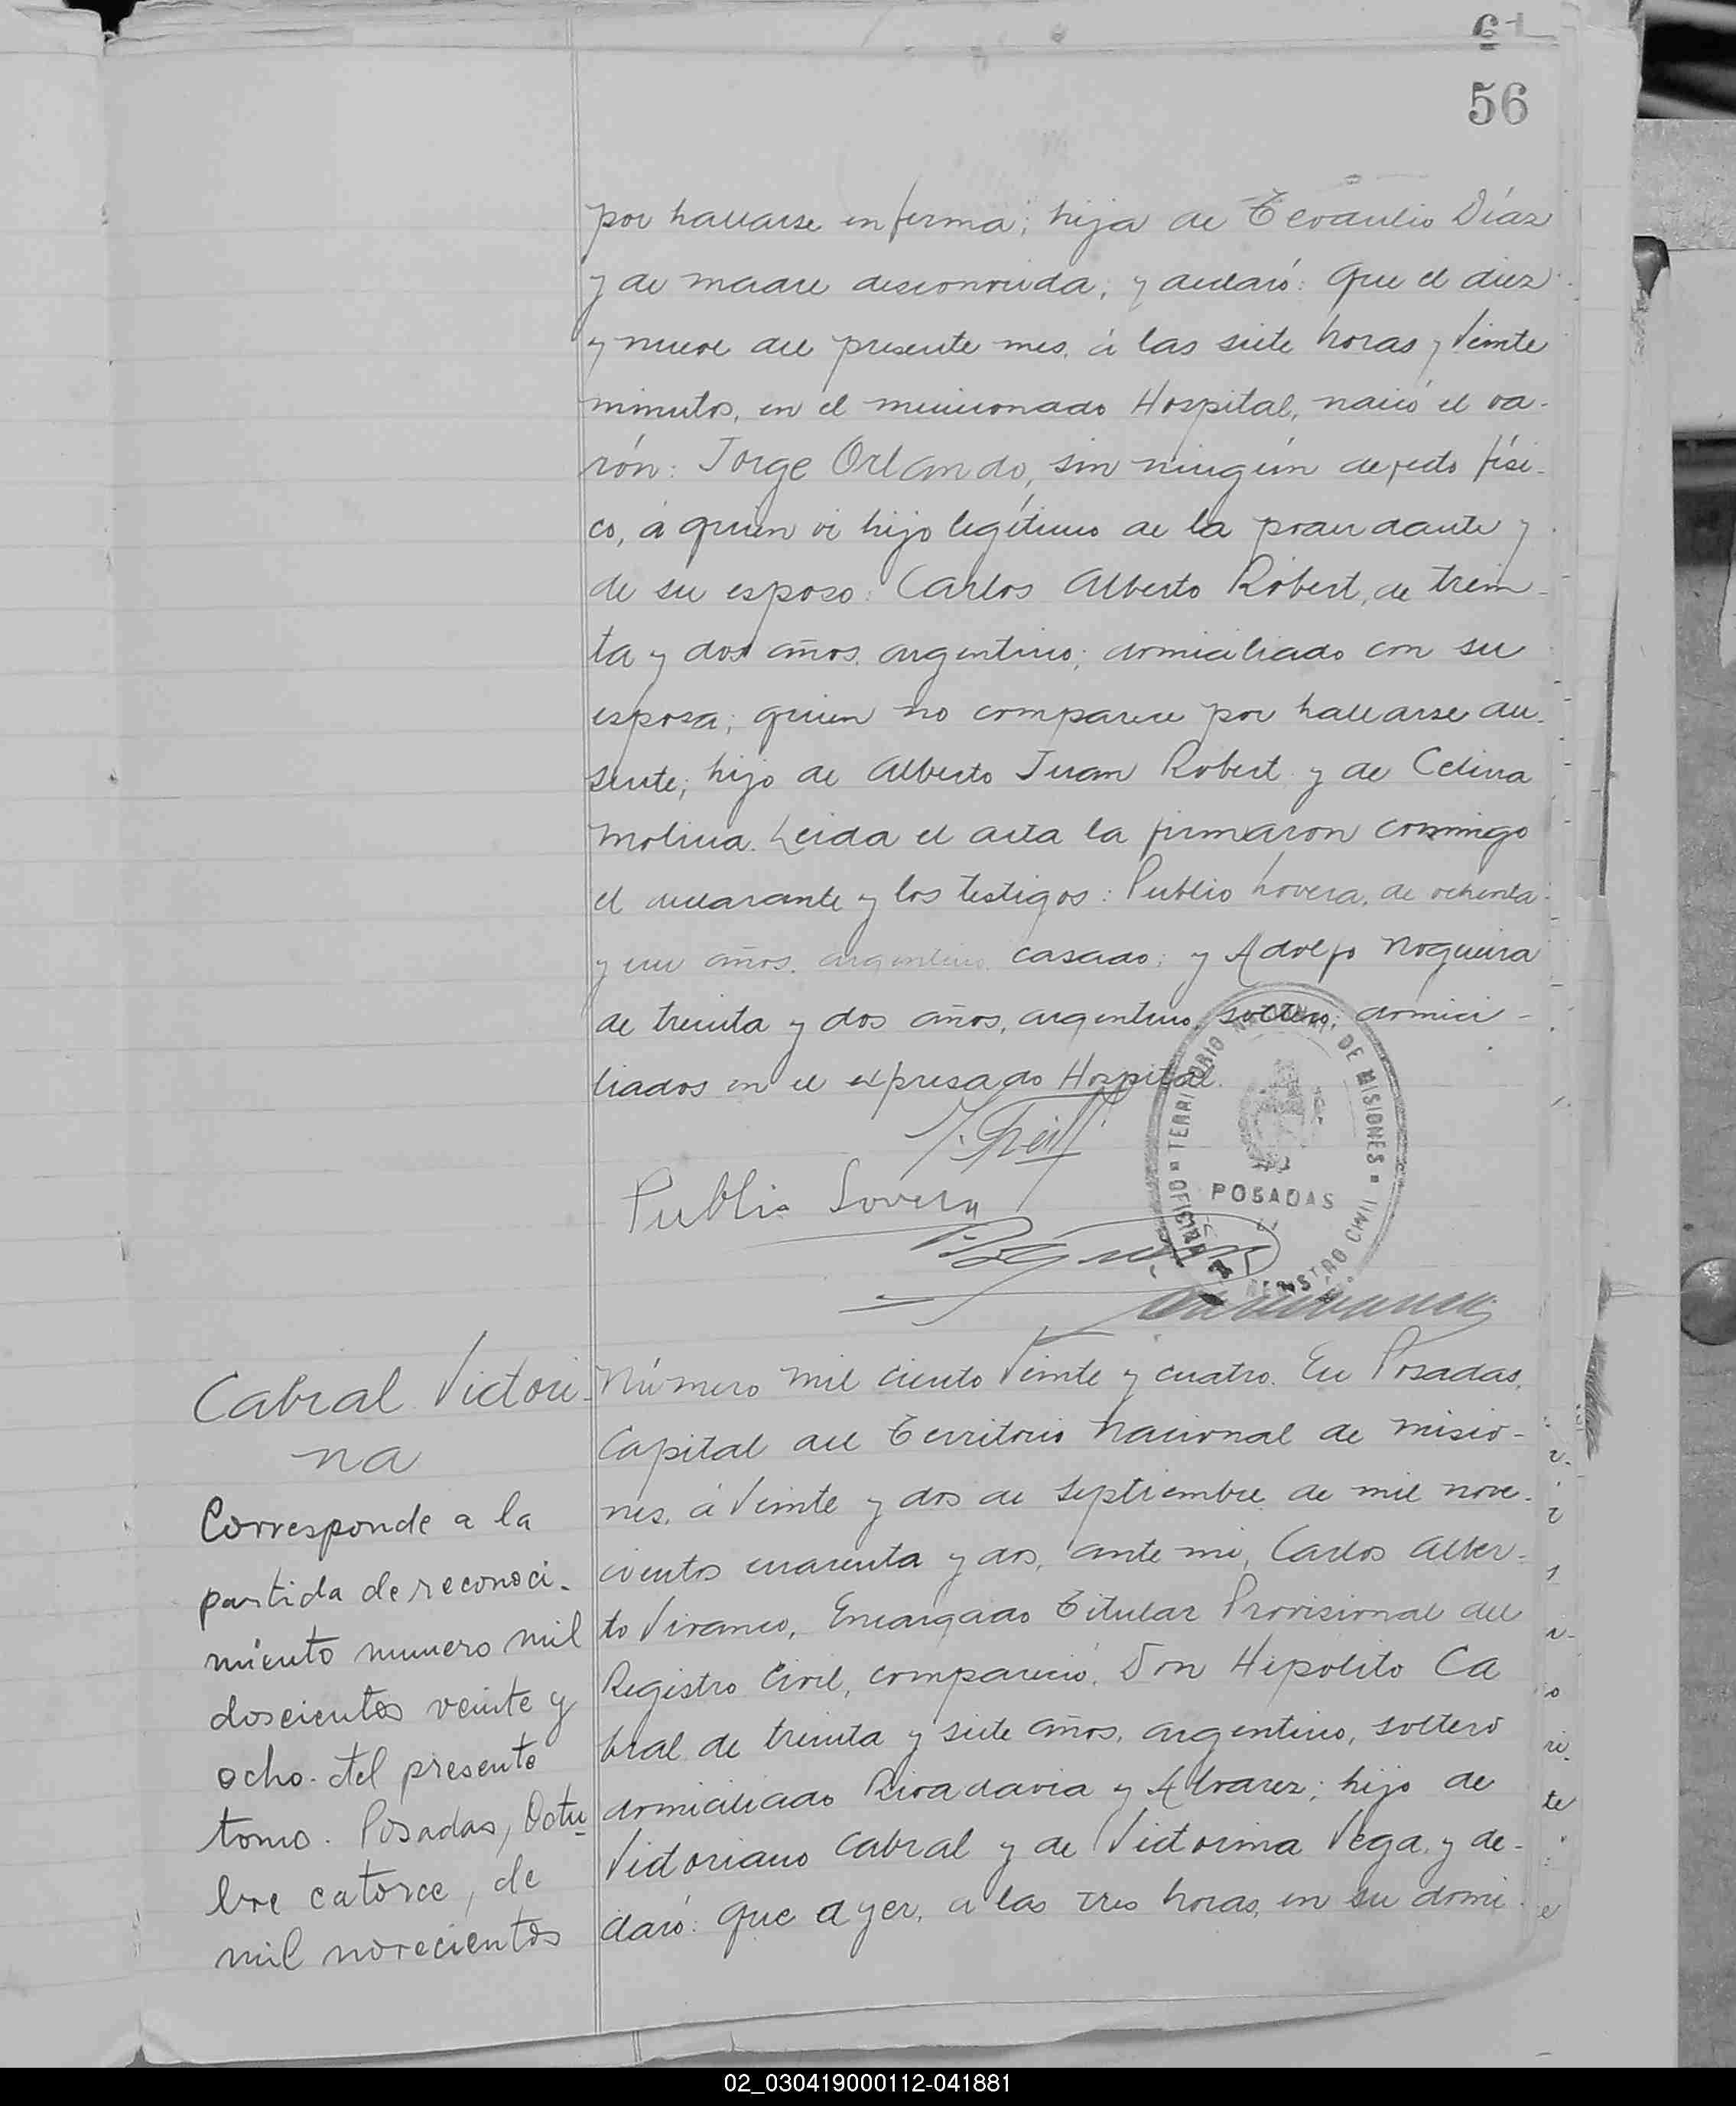 61
56
por hallarse enferma; hija de Teodulio Díaz
y de madre desconocida; y declaró: Que el diez
y nueve del presente mes, á las siete horas y veinte
minutos, en el mencionado Hospital, nació el va-
rón: Jorge Orlando, sin ningún defecto físi-
co, á quien vi hijo legítimo de la precedante y
de su esposo: Carlos Alberto Robert, de trein-
ta y dos años, argentino; domiciliado con su
esposa; quien no comparece por hallarse au-
sente; hijo de Alberto Juan Robert y de Celina
Molina. Leida el acta la firmaron conmigo
el declarante y los testigos: Publio Lovera, de ochenta
y un años, argentino, casado; y Adolfo Nogueira
de treinta y dos años, argentino, soltero; domici-
liados en el expresado Hospital.
Publio Lovera
TERRITORIO NACIONAL DE MISIONES
POSADAS
OFICINA REGISTRO CIVIL
Cabral Victori-
na
Corresponde a la
partida de reconoci-
miento numero mil
doscientos veinte y
ocho del presente
tomo. Posadas, Octu
bre catorce, de
mil novecientos
Número mil ciento veinte y cuatro. En Posadas,
Capital del Territorio Nacional de Misio-
nes, á veinte y dos de Septiembre de mil nove-
cientos cuarenta y dos, ante mi, Carlos Alber-
to Vivanco, Encargado Titular Provisional del
Registro Civil, compareció, Don Hipolito Ca
bral de treinta y siete años, argentino, soltero
domiciliado Rivadavia y Alvarez; hijo de
Victoriano Cabral y de Victorina Vega, y de-
claró: Que ayer, a las tres horas, en su domi
02_030419000112-041881